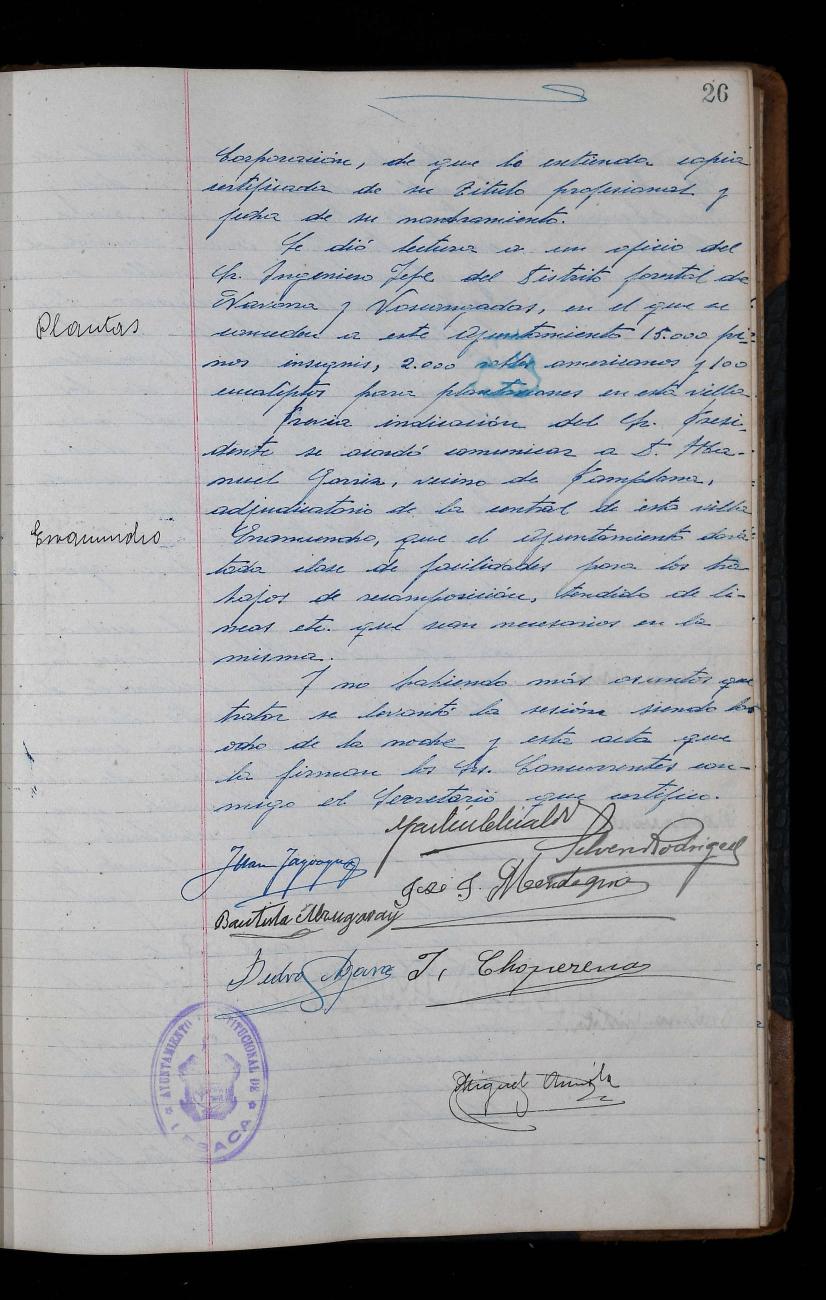 26
Corporación, de que le extienda copia
certificada de su Título profesional y
fecha de su nombramiento.
Se dió lectura a un oficio del
Sr. Ingeniero Jefe del Distrito forestal de
Navarra y Vascongadas, en el que se
Plantas
conceden a este Ayuntamiento 15.000 pi-
nos insignis, 2.000 robles americanos y 100
eucaliptos para plantaciones en esta villa.
Previa indicación del Sr. Presi-
dente se acordó comunicar a D. Ma-
nuel Garriz, vecino de Pamplona,
adjudicatario de la central de esta villa
Enamundio
Enamundio, que el Ayuntamiento dará
toda clase de facilidades para los tra
bajos de recomposición, tendido de lí-
neas etc. que sean necesarios en la
misma.
Y no habiendo más asuntos que
tratar se levantó la sesión siendo las
ocho de la noche y esta acta que
la firman los Srs. Concurrentes con-
migo el Secretario que certifico.
Silverio Rodriguez
Juan
José J. Mendagna
Bautista
Pedro
J. Choperena
AYUNTAMIENTO CONSTITUCIONAL DE
LESACA
Miguel